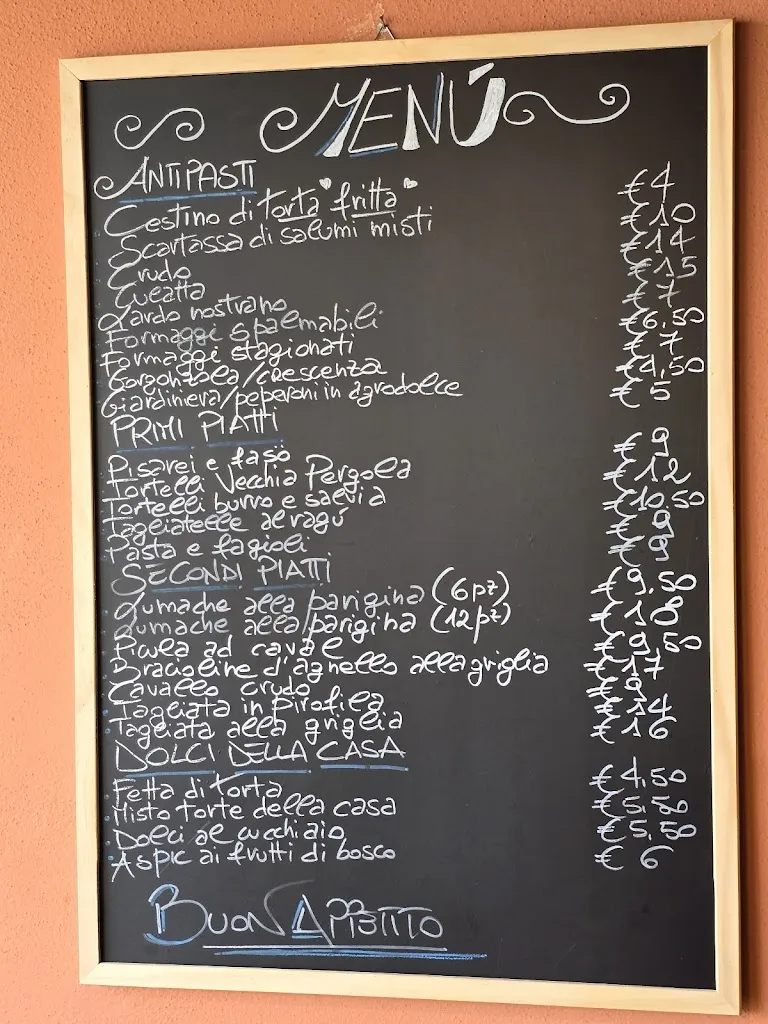 MENÚ
ANTIPASTI
Cestino di torta "fritta" €4
Scartassa di salumi misti €10
Crudo €14
Cueatta €15
Lardo nostrano €7
Formaggi spalmabili €6,50
Formaggi stagionati €7
Gorgonzola/crescenza €4,50
Giardiniera/peperoni in agrodolce €5
PRIMI PIATTI
Pisarei e fasö €9
Tortelli Vecchia Pergola €12
Tortelli burro e salvia €10,50
Tagliatelle al ragú €9
Pasta e fagioli €9
SECONDI PIATTI
Lumache alla parigina (6pz) €9,50
Lumache alla parigina (12pz) €18
Picula ad caval €9,50
Bracioline d'agnello alla griglia €17
Cavallo crudo €9
Tagliata in pirofila €14
Tagliata alla griglia €16
DOLCI DELLA CASA
Fetta di torta €4,50
Misto torte della casa €5,50
Dolci al cucchiaio €5,50
Aspic ai frutti di bosco €6
BUON APPETITO